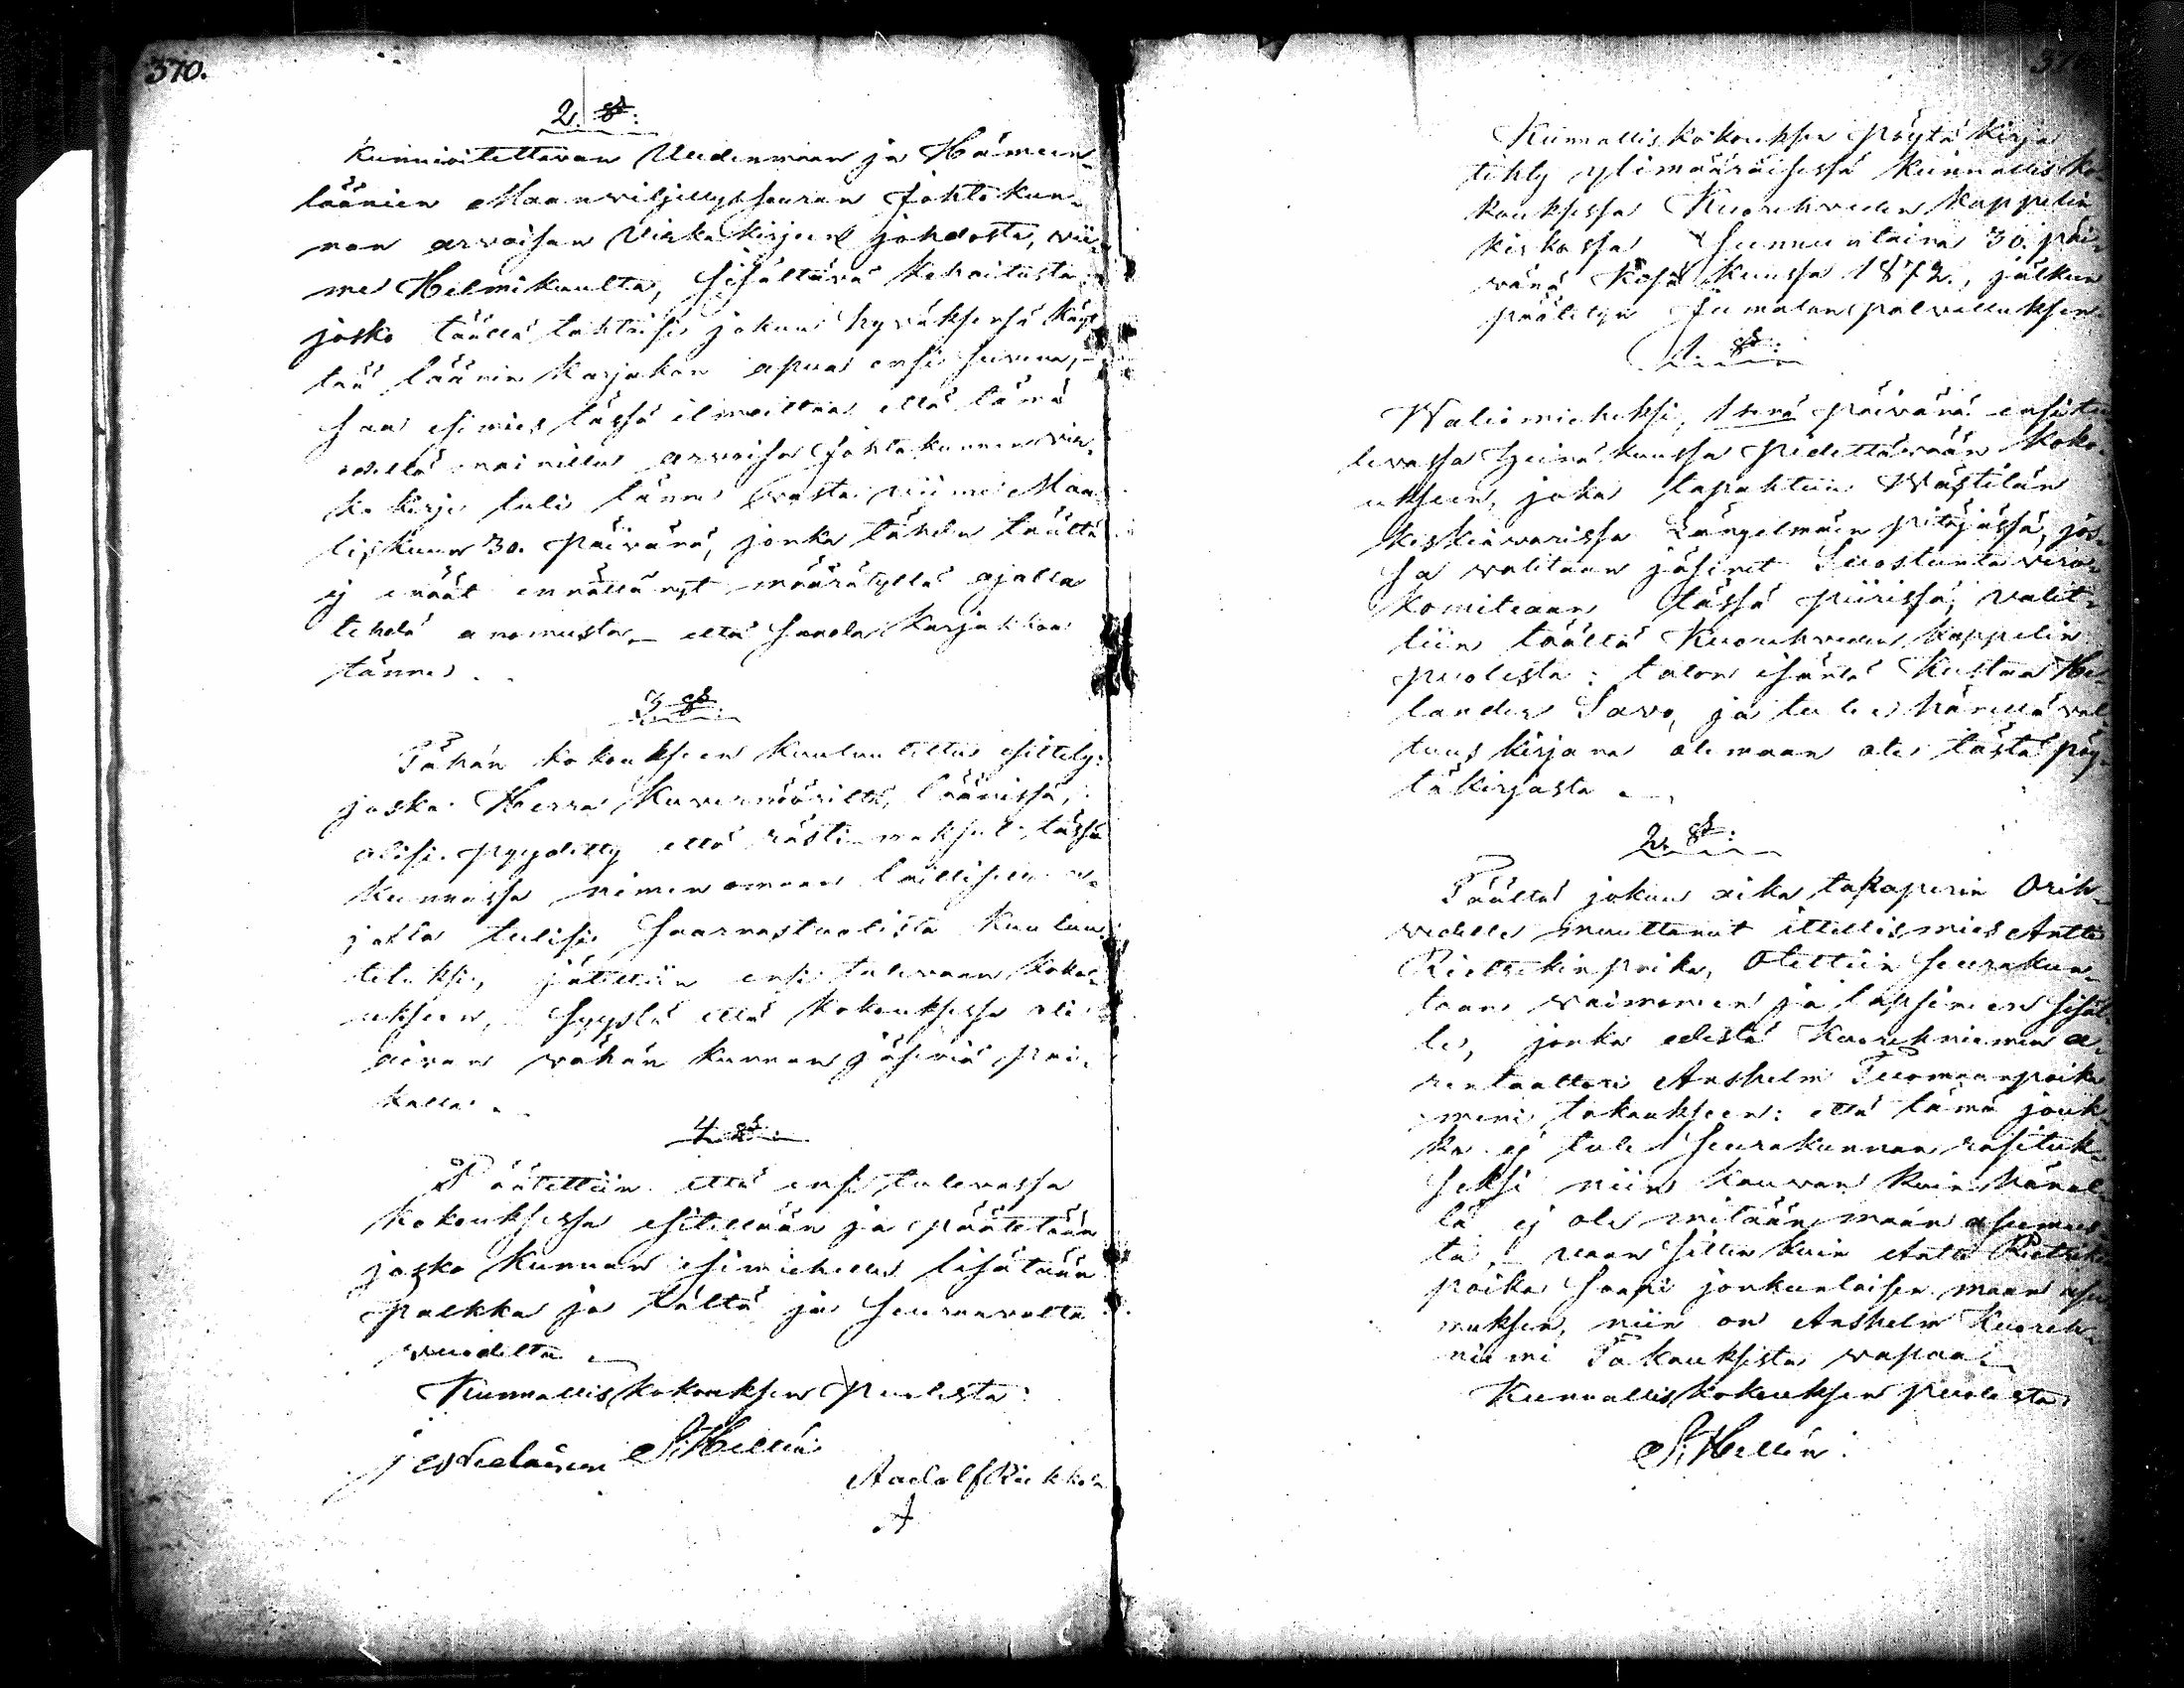 370.
2. §:
Kunnioitettavan Uudenmaan ja Hämeen-
läänien Maanwiljellysseuran Johtokun-
nan arwoisan Virkakirjeen johdosta, vii-
me Helmikuulta, sisältävä kehoitusta
josko täällä tahtoisi jokuu hyväksensä käyt-
tää läänin Karjakon apua ensi suvena,-
saa esimies tässä ilmoittaa että tämä
mainittu arvoisa Johtokunnan vir-
ka kirje tuli tänne vasta viime Maa-
liskuun 30. päivänä, jonka tähden täältä
ej enäät ennättänyt määrätyllä ajalla
tehdä anomusta,- että saada Karjakkoa
tänne.
3 §:
Tähän kokoukseen kuuluutettu esittely:
joska Herra Kuvernööriltä, läänissä,
olisi pyydetty että rästi maksut tässä
kunnassa nimen omaan laillisella a-
jalla tulisi Saarnastuolista kuuluu-
tetuksi, jätettiin ensi tulevaan koko-
ukseen, syystä että kokouksessa oli
aivan vähän kunnan jäseniä pai-
kalla.
4 §:
Päätettiin että ensi tulevassa
kokouksessa esitellään ja päätetään
josko kunnan esimiehelle lisätään
palkka ja tältä ja seuraavalta
vuodelta.
Kunnalliskokouksen puolesta:
S. Hellén
Aadolf Kukkola
A
Kunnallis kokouksen pöytä kirja
tehty ylimääräisessä kunnallisko-
kouksessa Kuorehveden Kappelin
kirkossa Sunnuntaina 30. päi-
vänä Kesäkuussa 1872., jälkeen
päätetyn Jumalanpalvelluksen.
1. §:
Waliomieheksi, 1senä päivänä ensitu-
levassa Heinäkuussa pidettävään koko-
ukseen, joka tapahtuu Wästilän
keskievarissa Längelmäen pitäjässä, jos-
sa valitaan jäsenet Suostunta vero-
komiteaan tässä piirissä, valit-
tiin täällä Kuorehveden kappelin
puolesta: talon isäntä Kustaa He-
lander Savo, ja tulee hänellä val-
tuus kirjana olemaan ote tästä pöy-
täkirjasta.
2. §:
Täältä jokuu aika takaperin Orih-
vedelle muuttanut ittellismies Antti
Rietrikinpoika, otettiin seurakun-
taan vaimonen ja lapsinen sisäl-
le, jonka edestä Kuorehniemen a-
rentaattori Anshelm Tuomaanpoika
meni takaukseen: että tämä jouk-
ko ej tule seurakunnan rasituk-
seksi niin kauvan kuin hänel-
lä ej ole mitään maan asumus-
ta,- vaan sitten kuin Antti Rietrikin
poika saapi jonkunlaisen maan asu-
muksen, niin on Anshelm Kuoreh-
niemi Takauksesta vapaa.
Kunnalliskokouksen puolesta:
S. Hellén: